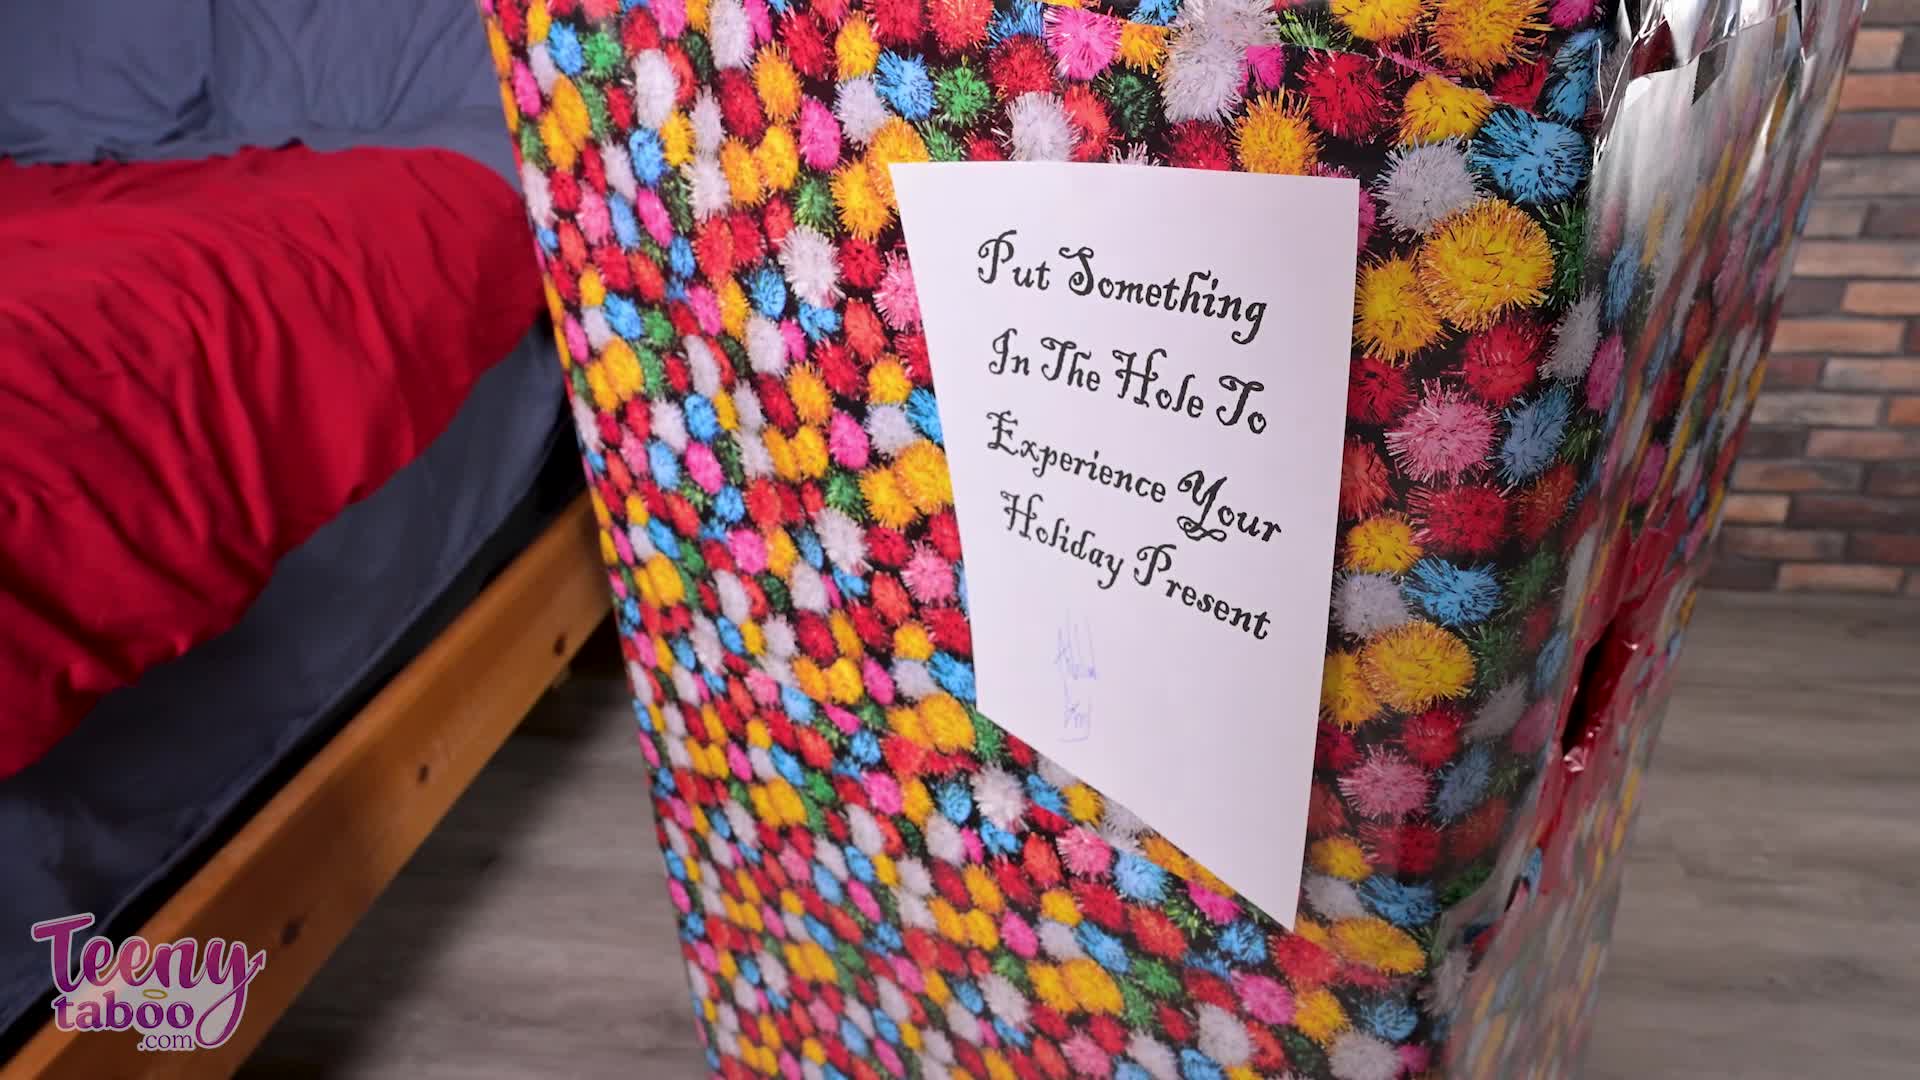 Put Something
In The Hole To
Experience Your
Holiday Present
Teeny
taboo
.com